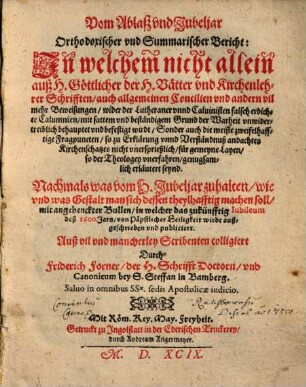 Vom Ablaß vnd Jubeljar
Orthodoxischer vnd Summarischer Bericht:
In welchem nicht allein
auß H. Göttlicher der H. Vätter vnd Kirchenleh-
rer Schrifften/ auch allgemeinen Concilien vnd andern vil
mehr Beweisungen/ wider der Lutheraner vnnd Caluinisten falsch erdich-
te Calumnien/ mit sattem vnd beständigem Grund der Warheit vnwider-
treiblich behauptet vnd befestigt würdt/ Sonder auch die meiste zweiffelhaff-
tige Fragpuncten/ so zu Erklärung vnnd Verständnuß andachtes
Kirchenschatzes nicht vnersprießlich/ für gemeyne Layen/
so der Theologey vnerfahren/ genugsam-
lich erläutert seynd.
Nachmals was vom H. Jubeljar zuhalten/ wie
vnd was Gestalt man sich dessen theylhafftig machen soll/
mit angehenckter Ballen/ in welcher das zukünfftig Iubileum
deß 1600. Jars/ von Päpstlicher Heiligkeit wirdt auß-
geschrieben vnd publiciert.
Auß vil vnd mancherley Scribenten colligiert
Durch
Friderich Forner/ der H. Schrifft Doctorn/ vnd
Canonicum bey S. Steffan in Bamberg.
Saluo in omnibus SSæ. sedis Apostolicæ iudicio.
Conventus
Mit Röm. Key. May. Freyheit.
Getruckt zu Ingolstatt in der Ederischen Truckerey/
durch Andream Angermayer.
M. D. XCIX.